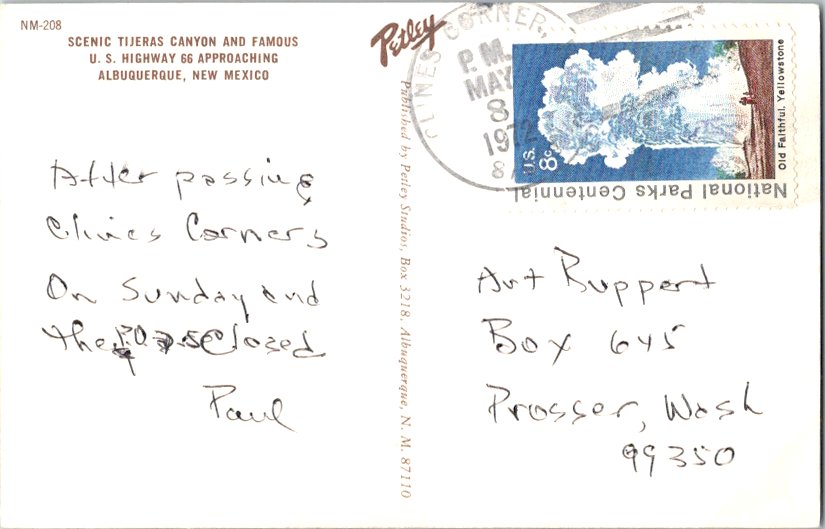 NM-208
SCENIC TIJERAS CANYON AND FAMOUS
U. S. HIGHWAY 66 APPROACHING
ALBUQUERQUE, NEW MEXICO
After passing
Clines Corners
On Sunday and
the P.O. is Closed
Paul
Petley
Published by Petley Studios, Box 3218, Albuquerque, N. M. 87110
CLINES CORNER
P.M.
MAY
8
1972
U.S. 8c
Old Faithful, Yellowstone
National Parks Centennial
Art Ruppert
Box 645
Prosser, Wash
99350